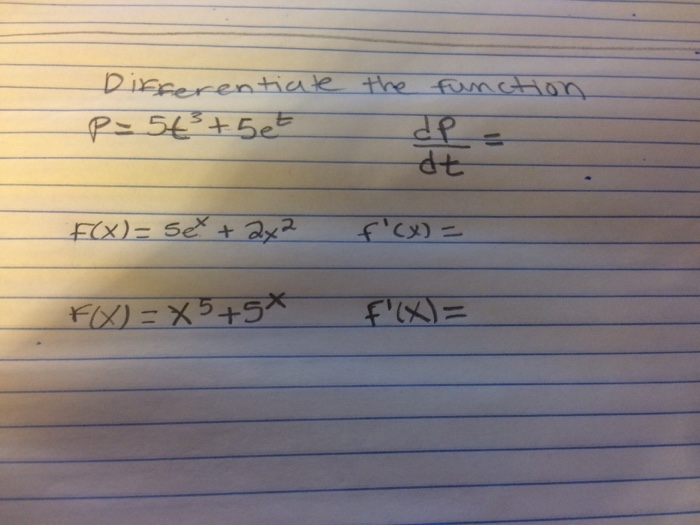 Differentiate the function
P = 5t³ + 5eᵗ dP/dt =
F(x) = 5eˣ + 2x² f'(x) =
F(x) = x⁵ + 5ˣ f'(x) =